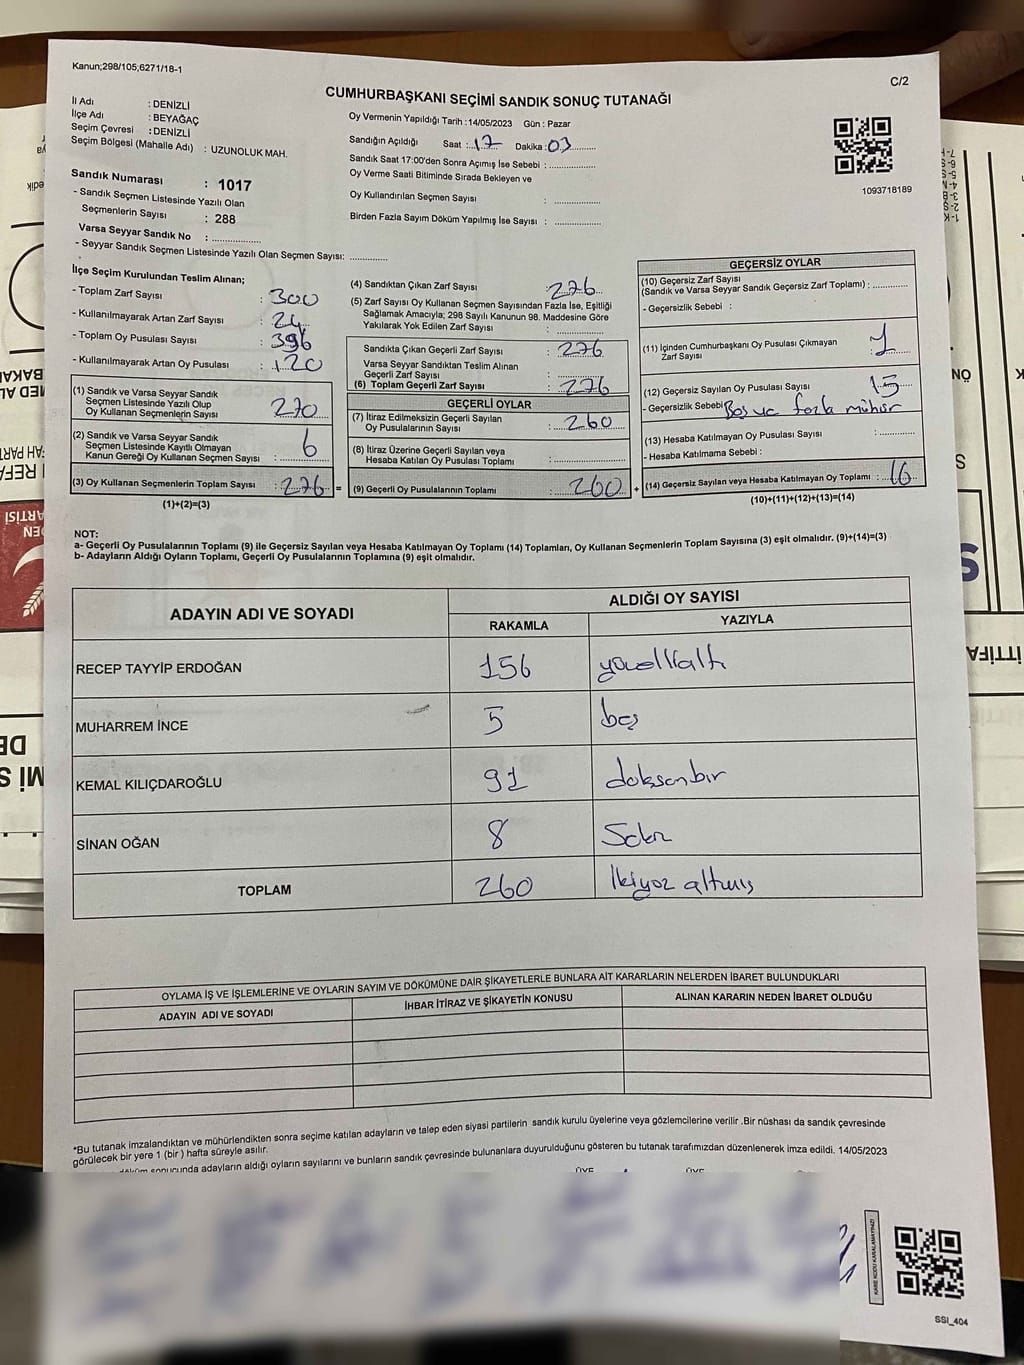 Kanun;298/105,6271/18-1
C/2
CUMHURBAŞKANI SEÇİMİ SANDIK SONUÇ TUTANAĞI
İl Adı : DENİZLİ
İlçe Adı : BEYAĞAÇ
Seçim Çevresi : DENİZLİ
Seçim Bölgesi (Mahalle Adı) : UZUNOLUK MAH.
Sandık Numarası : 1017
- Sandık Seçmen Listesinde Yazılı Olan
Seçmenlerin Sayısı : 288
Varsa Seyyar Sandık No : ................
- Seyyar Sandık Seçmen Listesinde Yazılı Olan Seçmen Sayısı: ............
Oy Vermenin Yapıldığı Tarih : 14/05/2023 Gün : Pazar
Sandığın Açıldığı Saat : 17 Dakika : 03
Sandık Saat 17:00'den Sonra Açımış İse Sebebi : ................
Oy Verme Saati Bitiminde Sırada Bekleyen ve
Oy Kullandırılan Seçmen Sayısı : ................
Birden Fazla Sayım Döküm Yapılmış İse Sayısı : ................
1093718189
İlçe Seçim Kurulundan Teslim Alınan;
- Toplam Zarf Sayısı : 300
- Kullanılmayarak Artan Zarf Sayısı : 24
- Toplam Oy Pusulası Sayısı : 396
- Kullanılmayarak Artan Oy Pusulası : 120
(1) Sandık ve Varsa Seyyar Sandık
Seçmen Listesinde Yazılı Olup
Oy Kullanan Seçmenlerin Sayısı : 270
(2) Sandık ve Varsa Seyyar Sandık
Seçmen Listesinde Kayıtlı Olmayan
Kanun Gereği Oy Kullanan Seçmen Sayısı : 6
(3) Oy Kullanan Seçmenlerin Toplam Sayısı : 276 =
(1)+(2)=(3)
(4) Sandıktan Çıkan Zarf Sayısı : 276
(5) Zarf Sayısı Oy Kullanan Seçmen Sayısından Fazla İse, Eşitliği
Sağlamak Amacıyla; 298 Sayılı Kanunun 98. Maddesine Göre
Yakılarak Yok Edilen Zarf Sayısı : ................
Sandıkta Çıkan Geçerli Zarf Sayısı : 276
Varsa Seyyar Sandıktan Teslim Alınan
Geçerli Zarf Sayısı : ................
(6) Toplam Geçerli Zarf Sayısı : 276
GEÇERLİ OYLAR
(7) İtiraz Edilmeksizin Geçerli Sayılan
Oy Pusulalarının Sayısı : 260
(8) İtiraz Üzerine Geçerli Sayılan veya
Hesaba Katılan Oy Pusulası Toplamı : ................
(9) Geçerli Oy Pusulalarının Toplamı : 260 +
GEÇERSİZ OYLAR
(10) Geçersiz Zarf Sayısı
(Sandık ve Varsa Seyyar Sandık Geçersiz Zarf Toplamı) : ............
- Geçersizlik Sebebi :
(11) İçinden Cumhurbaşkanı Oy Pusulası Çıkmayan
Zarf Sayısı : 1
(12) Geçersiz Sayılan Oy Pusulası Sayısı : 15
- Geçersizlik Sebebi Boş ve fazla mühür
(13) Hesaba Katılmayan Oy Pusulası Sayısı : ............
- Hesaba Katılmama Sebebi :
(14) Geçersiz Sayılan veya Hesaba Katılmayan Oy Toplamı : 16
(10)+(11)+(12)+(13)=(14)
NOT:
a- Geçerli Oy Pusulalarının Toplamı (9) ile Geçersiz Sayılan veya Hesaba Katılmayan Oy Toplamı (14) Toplamları, Oy Kullanan Seçmenlerin Toplam Sayısına (3) eşit olmalıdır. (9)+(14)=(3)
b- Adayların Aldığı Oyların Toplamı, Geçerli Oy Pusulalarının Toplamına (9) eşit olmalıdır.
ADAYIN ADI VE SOYADI
ALDIĞI OY SAYISI
RAKAMLA YAZIYLA
RECEP TAYYİP ERDOĞAN 156 yüzellialtı
MUHARREM İNCE 5 beş
KEMAL KILIÇDAROĞLU 91 doksanbir
SİNAN OĞAN 8 Sekiz
TOPLAM 260 İkiyüz altmış
OYLAMA İŞ VE İŞLEMLERİNE VE OYLARIN SAYIM VE DÖKÜMÜNE DAİR ŞİKAYETLERLE BUNLARA AİT KARARLARIN NELERDEN İBARET BULUNDUKLARI
ADAYIN ADI VE SOYADI İHBAR İTİRAZ VE ŞİKAYETİN KONUSU ALINAN KARARIN NEDEN İBARET OLDUĞU
*Bu tutanak imzalandıktan ve mühürlendikten sonra seçime katılan adayların ve talep eden siyasi partilerin sandık kurulu üyelerine veya gözlemcilerine verilir .Bir nüshası da sandık çevresinde
görülecek bir yere 1 (bir ) hafta süreyle asılır.
sonucunda adayların aldığı oyların sayılarını ve bunların sandık çevresinde bulunanlara duyurulduğunu gösteren bu tutanak tarafımızdan düzenlenerek imza edildi. 14/05/2023
ÜYE ÜYE
KARE KODU KARALAMAYINIZ!
SSİ_404